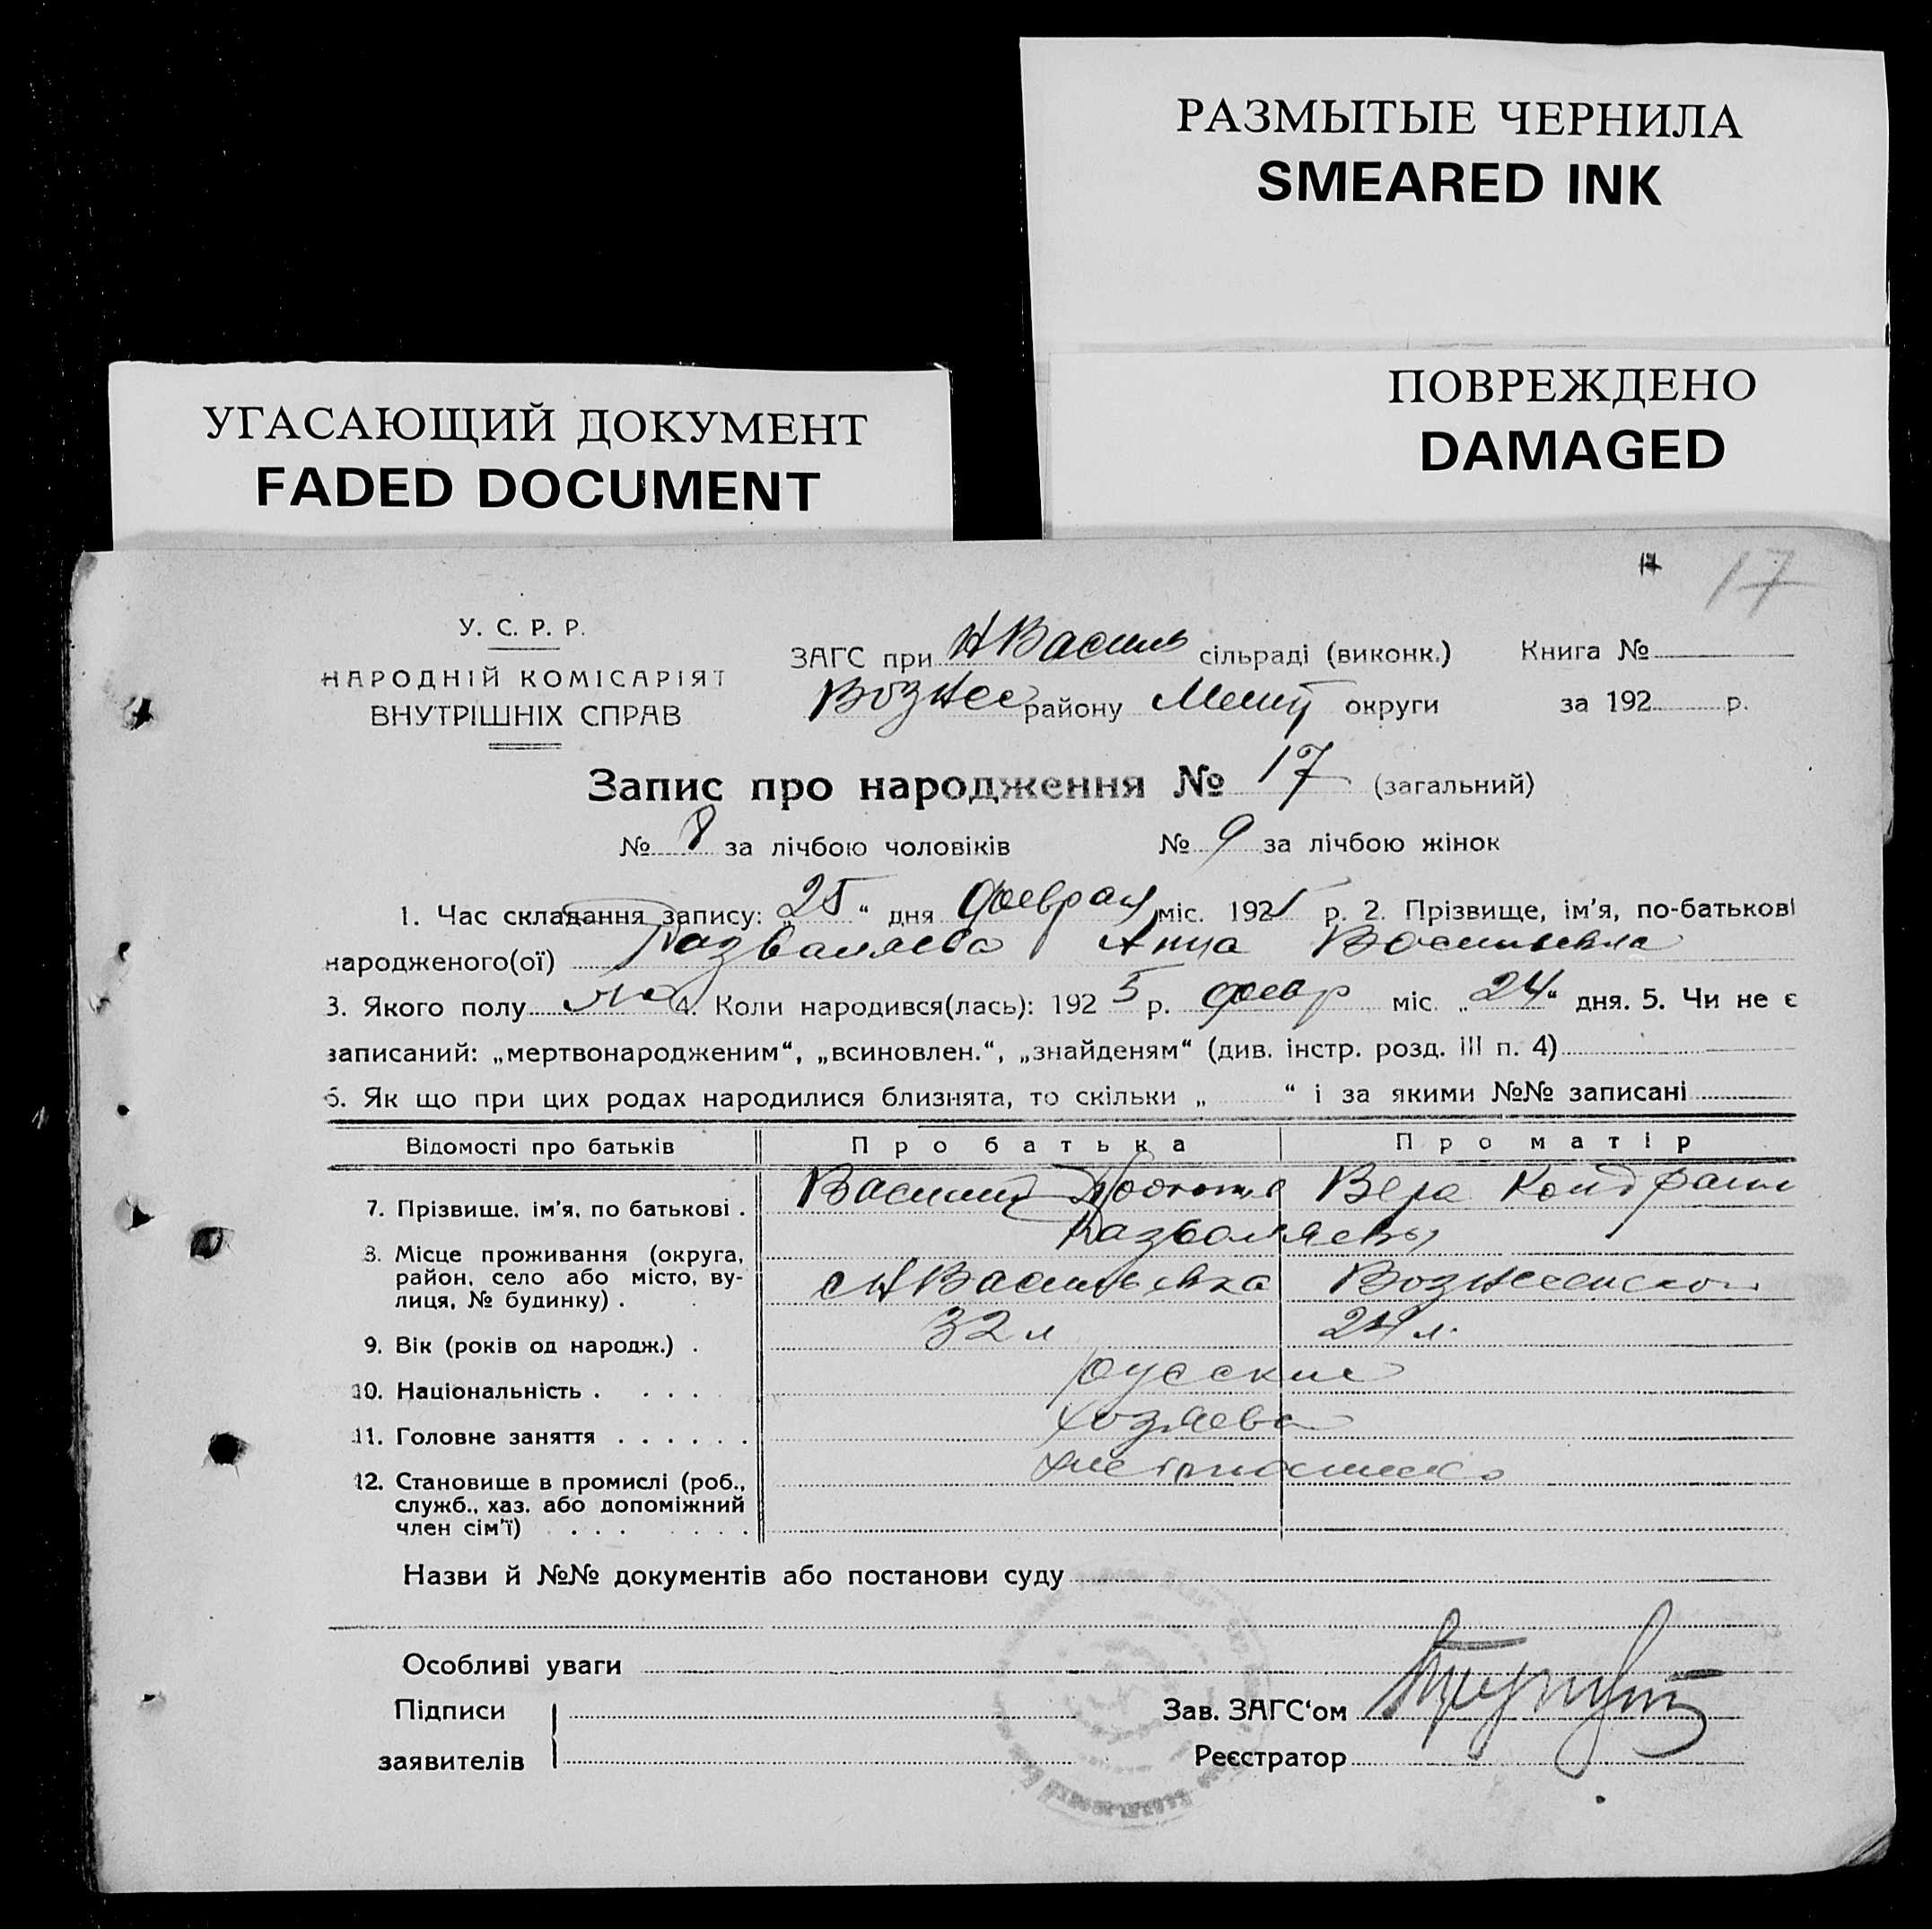 РАЗМЫТЫЕ ЧЕРНИЛА
SMEARED INK
ПОВРЕЖДЕНО
DAMAGED
УГАСАЮЩИЙ ДОКУМЕНТ
FADED DOCUMENT
17
У. С. Р. Р.
НАРОДНІЙ КОМІСАРІЯТ
ВНУТРІШНІХ СПРАВ
ЗАГС при НВасиль сільраді (виконк.) Книга №
Вознес району Мелит округи за 192 р.
Запис про народження № 17 (загальний)
№ 8 за лічбою чоловіків № 9 за лічбою жінок
1. Час складання запису: „25“ дня Февраля міс. 1925 р. 2. Прізвище, ім'я, по-батькові
народженого(ої) Разваляева Анна Васильевна
3. Якого полу 4. Коли народився(лась): 1925 р. февр міс. „24“ дня. 5. Чи не є
записаний: „мертвонародженим“, „всиновлен.“, „знайденям“ (див. інстр. розд. III п. 4)
6. Як що при цих родах народилися близнята, то скільки „ “ і за якими №№ записані
Відомості про батьків Про батька Про матір
7. Прізвище, ім'я, по батькові . Василий Вера Кондрати
Разваляевы
8. Місце проживання (округа,
район, село або місто, ву-
лиця, № будинку) . с НВасильевка Вознесенского
9. Вік (років од народж.) . 32 л 24 л.
10. Національність . . . . русские
11. Головне заняття . . . . . . хозяева
12. Становище в промислі (роб.,
служб., хаз. або допоміжний
член сім'ї) . . . . . . .
Назви й №№ документів або постанови суду
Особливі уваги
Підписи
заявителів
Зав. ЗАГС'ом
Реєстратор